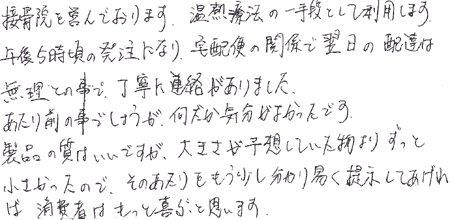 接骨院を営んでおります。温熱療法の一手段として利用します。
午後5時頃の発注になり、宅配便の関係で翌日の配達は
無理との事で、丁寧に連絡がありました。
あたり前の事でしょうが、何だか気分がよかったです。
製品の質はいいですが、大きさが予想していた物よりずっと
小さかったので、そのあたりをもう少し分かり易く提示してあげれ
ば、消費者はもっと喜ぶと思います。